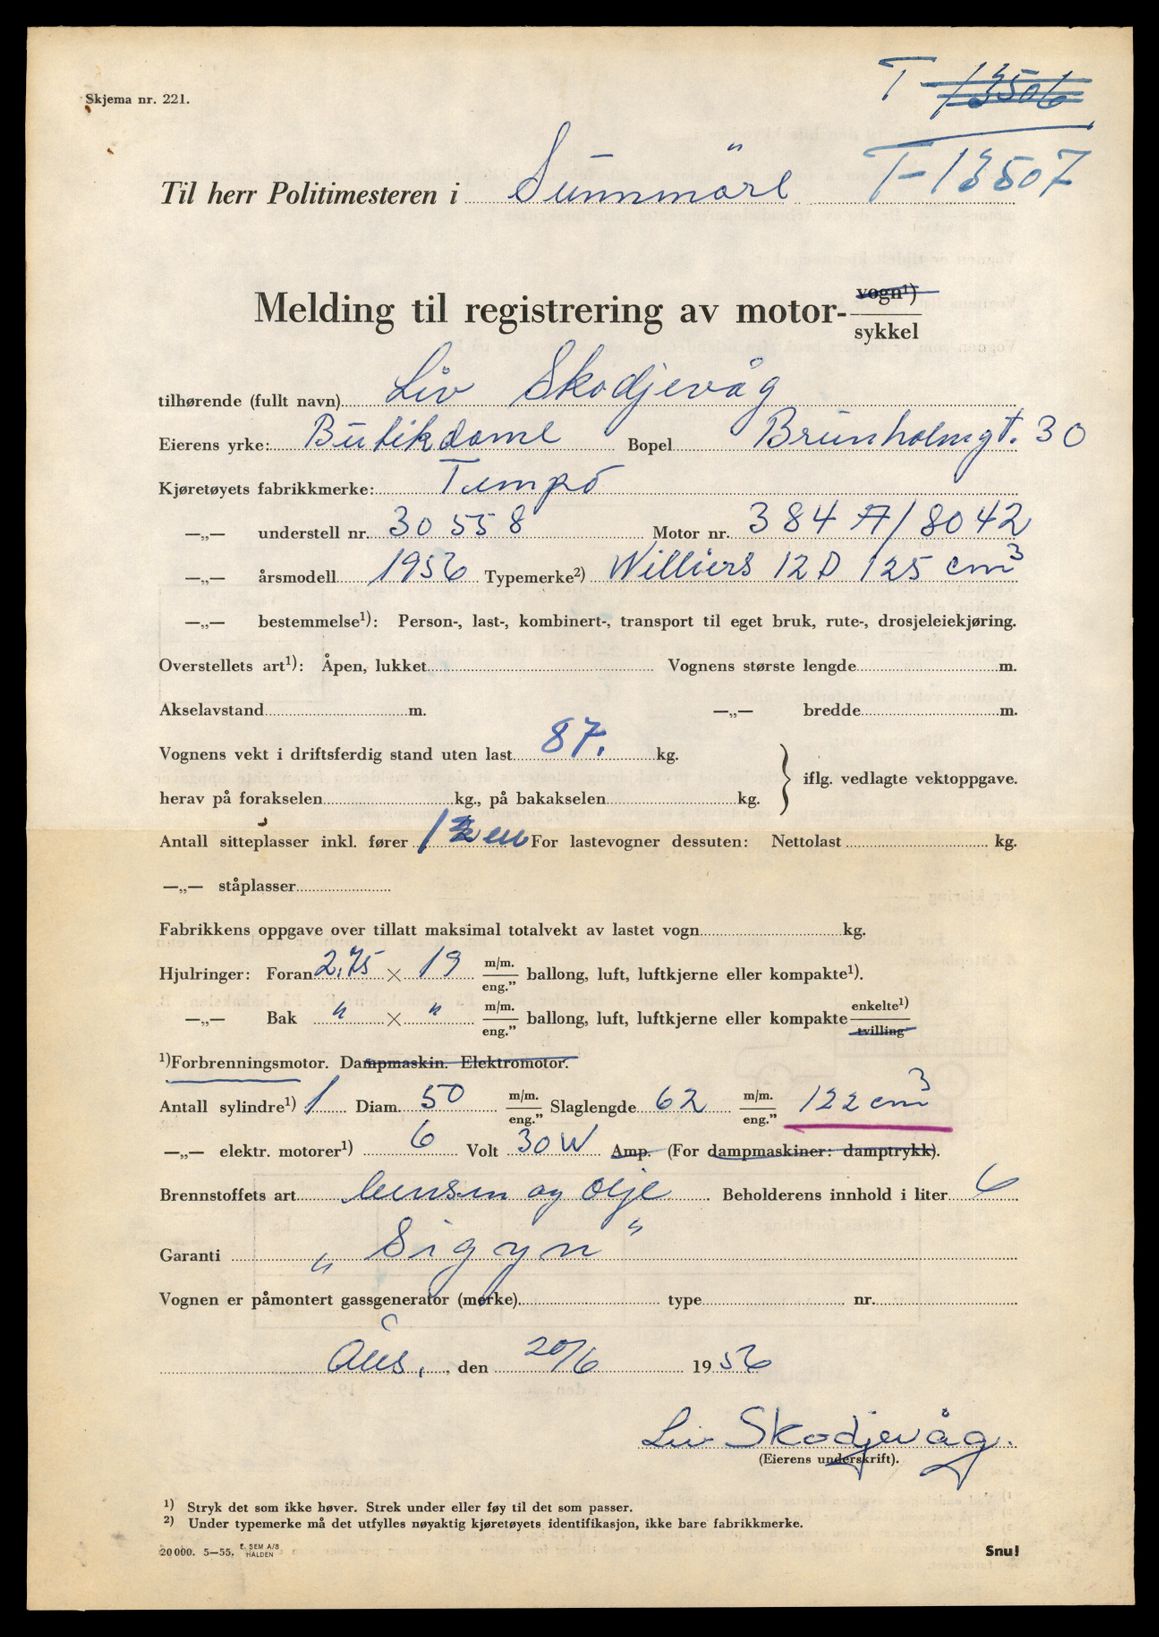 Skjema nr. 221.
T-13506
T-13507
Til herr Politimesteren i Sunnmöre
Melding til registrering av motor-vogn¹)
sykkel
tilhørende (fullt navn) Liv Skodjevåg
Eierens yrke: Butikdame Bopel Brunholmgt. 30
Kjøretøyets fabrikkmerke: Tempo
—„— understell nr. 30558 Motor nr. 384 A/8042
—„— årsmodell 1956 Typemerke²) Williers 12 D 125 cm³
—„— bestemmelse¹): Person-, last-, kombinert-, transport til eget bruk, rute-, drosjeleiekjøring.
Overstellets art¹): Åpen, lukket Vognens største lengde m.
Akselavstand m. —„— bredde m.
Vognens vekt i driftsferdig stand uten last 87. kg.
iflg. vedlagte vektoppgave.
herav på forakselen kg., på bakakselen kg.
Antall sitteplasser inkl. fører 1 en For lastevogner dessuten: Nettolast kg.
—„— ståplasser
Fabrikkens oppgave over tillatt maksimal totalvekt av lastet vogn kg.
Hjulringer: Foran 2,75 × 19 m/m. eng.” ballong, luft, luftkjerne eller kompakte¹).
—„— Bak " × " m/m. eng.” ballong, luft, luftkjerne eller kompakte enkelte¹) tvilling
¹)Forbrenningsmotor. Dampmaskin. Elektromotor.
Antall sylindre¹) 1 Diam. 50 m/m. eng.” Slaglengde 62 m/m. eng.” 122 cm³
—„— elektr. motorer¹) 6 Volt 30W Amp. (For dampmaskiner: damptrykk).
Brennstoffets art bensin og olje Beholderens innhold i liter 6
Garanti „Sigyn"
Vognen er påmontert gassgenerator (merke) type nr.
Åles., , den 20/6 1956
Liv Skodjevåg.
(Eierens underskrift).
¹) Stryk det som ikke høver. Strek under eller føy til det som passer.
²) Under typemerke må det utfylles nøyaktig kjøretøyets identifikasjon, ikke bare fabrikkmerke.
20 000. 5—55. E. SEM A/S HALDEN
Snu!